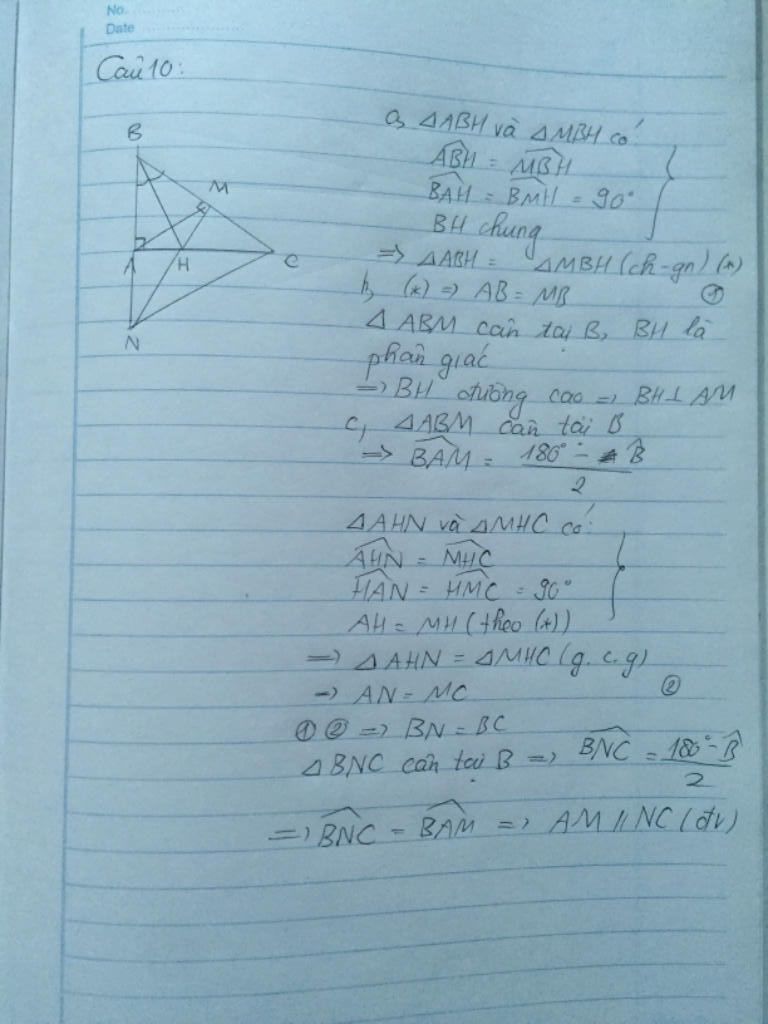 No.
Date
Câu 10:
B
M
A
H
C
N
a, △ABH và △MBH có:
$\widehat{ABH}$ = $\widehat{MBH}$
$\widehat{BAH}$ = $\widehat{BMH}$ = 90°
BH chung
=> △ABH = △MBH (ch-gn) (*)
b, (*) => AB = MB ①
△ABM cân tại B, BH là
phân giác
=> BH đường cao => BH ⊥ AM
c, △ABM cân tại B
=> $\widehat{BAM}$ = $\frac{180° - \widehat{B}}{2}$
△AHN và △MHC có:
$\widehat{AHN}$ = $\widehat{MHC}$
$\widehat{HAN}$ = $\widehat{HMC}$ = 90°
AH = MH (theo (*))
=> △AHN = △MHC (g.c.g)
-> AN = MC ②
① ② => BN = BC
△BNC cân tại B => $\widehat{BNC}$ = $\frac{180° - \widehat{B}}{2}$
=> $\widehat{BNC}$ = $\widehat{BAM}$ => AM // NC (đv)